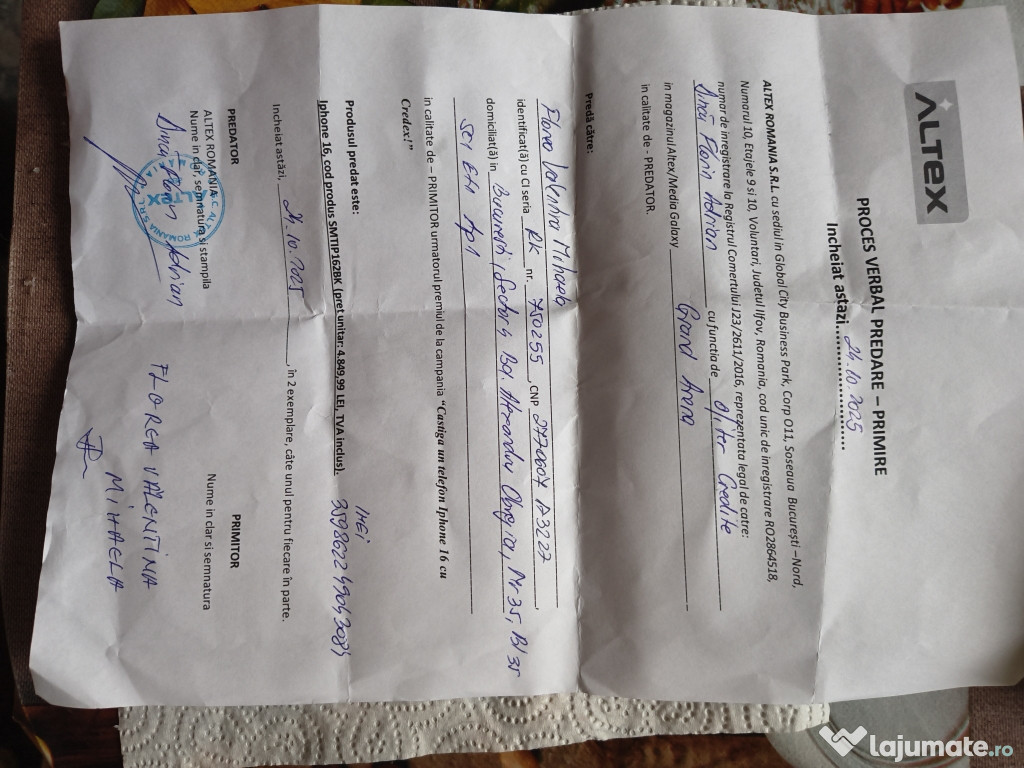 ALTEX
PROCES VERBAL PREDARE – PRIMIRE
Incheiat astăzi........24.10.2025........
ALTEX ROMANIA S.R.L. cu sediul in Global City Business Park, Corp O11, Soseaua București –Nord,
Numarul 10, Etajele 9 si 10, Voluntari, Judetul Ilfov, Romania, cod unic de inregistrare RO2864518,
numar de inregistrare la Registrul Comertului J23/2611/2016, reprezentata legal de catre:
Florin Adrian cu functia de Ofiter Credite
in magazinul Altex/Media Galaxy Grand Arena
in calitate de - PREDATOR.
Predă către:
Florea Valentina Mihaela
identificat(ă) cu CI seria RK nr. 750255, CNP
domiciliat(ă) în București, Sector 4 Bd. Alexandru Obregia, Nr 35, Bl 35
Sc 1 Et 1 Ap 1
in calitate de – PRIMITOR urmatorul premiul de la campania "Castiga un telefon Iphone 16 cu
Credex!"
Produsul predat este:
Iphone 16 cod produs SMTIP162BK (pret unitar: 4.849,99 LEI, TVA inclus)
IMEI
Incheiat astăzi, 24.10.2025, în 2 exemplare, câte unul pentru fiecare în parte.
PREDATOR
ALTEX ROMANIA
Nume in clar, semnatura si stampila
Florin Adrian
PRIMITOR
Nume in clar si semnatura
FLOREA VALENTINA
MIHAELA
lajumate.ro